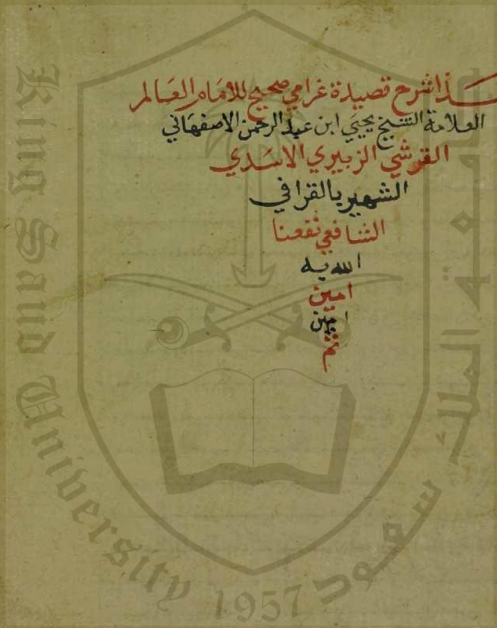 هذا شرح قصيدة غرامي صحيح للامام العالم
العلامة الشيخ يحيى ابن عبد الرحمن الاصفهاني
القرشي الزبيري الاسدي
الشهير بالقرافي
الشافعي نفعنا
الله به
امين
امين
تم
King Saud University
1957
جامعة الملك سعود